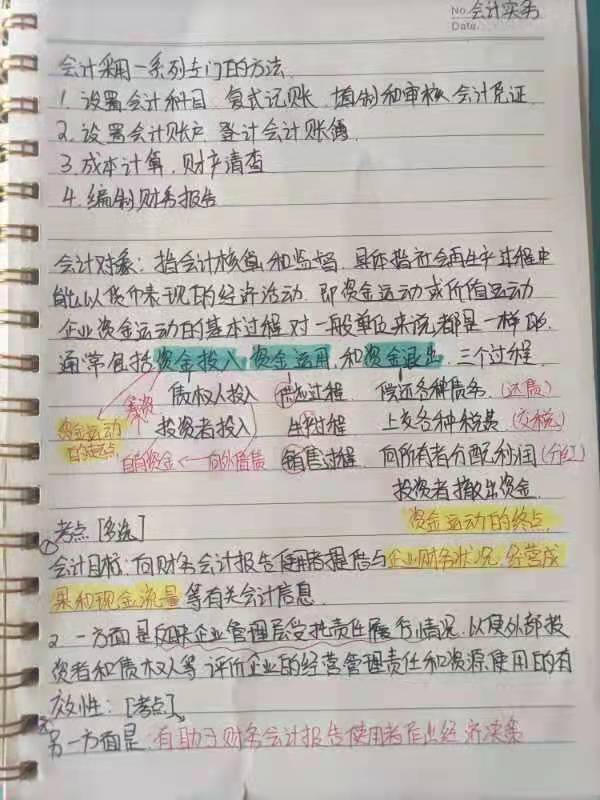 No. 会计实务
Date.
会计采用一系列专门的方法
1. 设置会计科目、复式记账、填制和审核会计凭证
2. 设置会计账户、登计会计账簿
3. 成本计算、财产清查
4. 编制财务报告
会计对象：指会计核算和监督，具体指社会再生产过程中
能以货币表现的经济活动，即资金运动或价值运动
企业资金运动的基本过程对一般单位来说都是一样的，
通常包括资金投入、资金运用、和资金退出，三个过程
筹资 债权人投入 供应过程 偿还各种债务 (还债)
资金运动的起点 投资者投入 生产过程 上交各种税费 (交税)
自有资金 ← 向外借债 销售过程 向所有者分配利润 (分红)
投资者抽出资金
资金运动的终点
考点 [多选]
①
会计目标：向财务会计报告使用者提供与企业财务状况、经营成
果和现金流量等有关会计信息
2. 一方面是反映企业管理层受托责任履行情况，以使外部投
资者和债权人等评价企业的经营管理责任和资源使用的有
效性：[考点]
另一方面是：有助于财务会计报告使用者作出经济决策